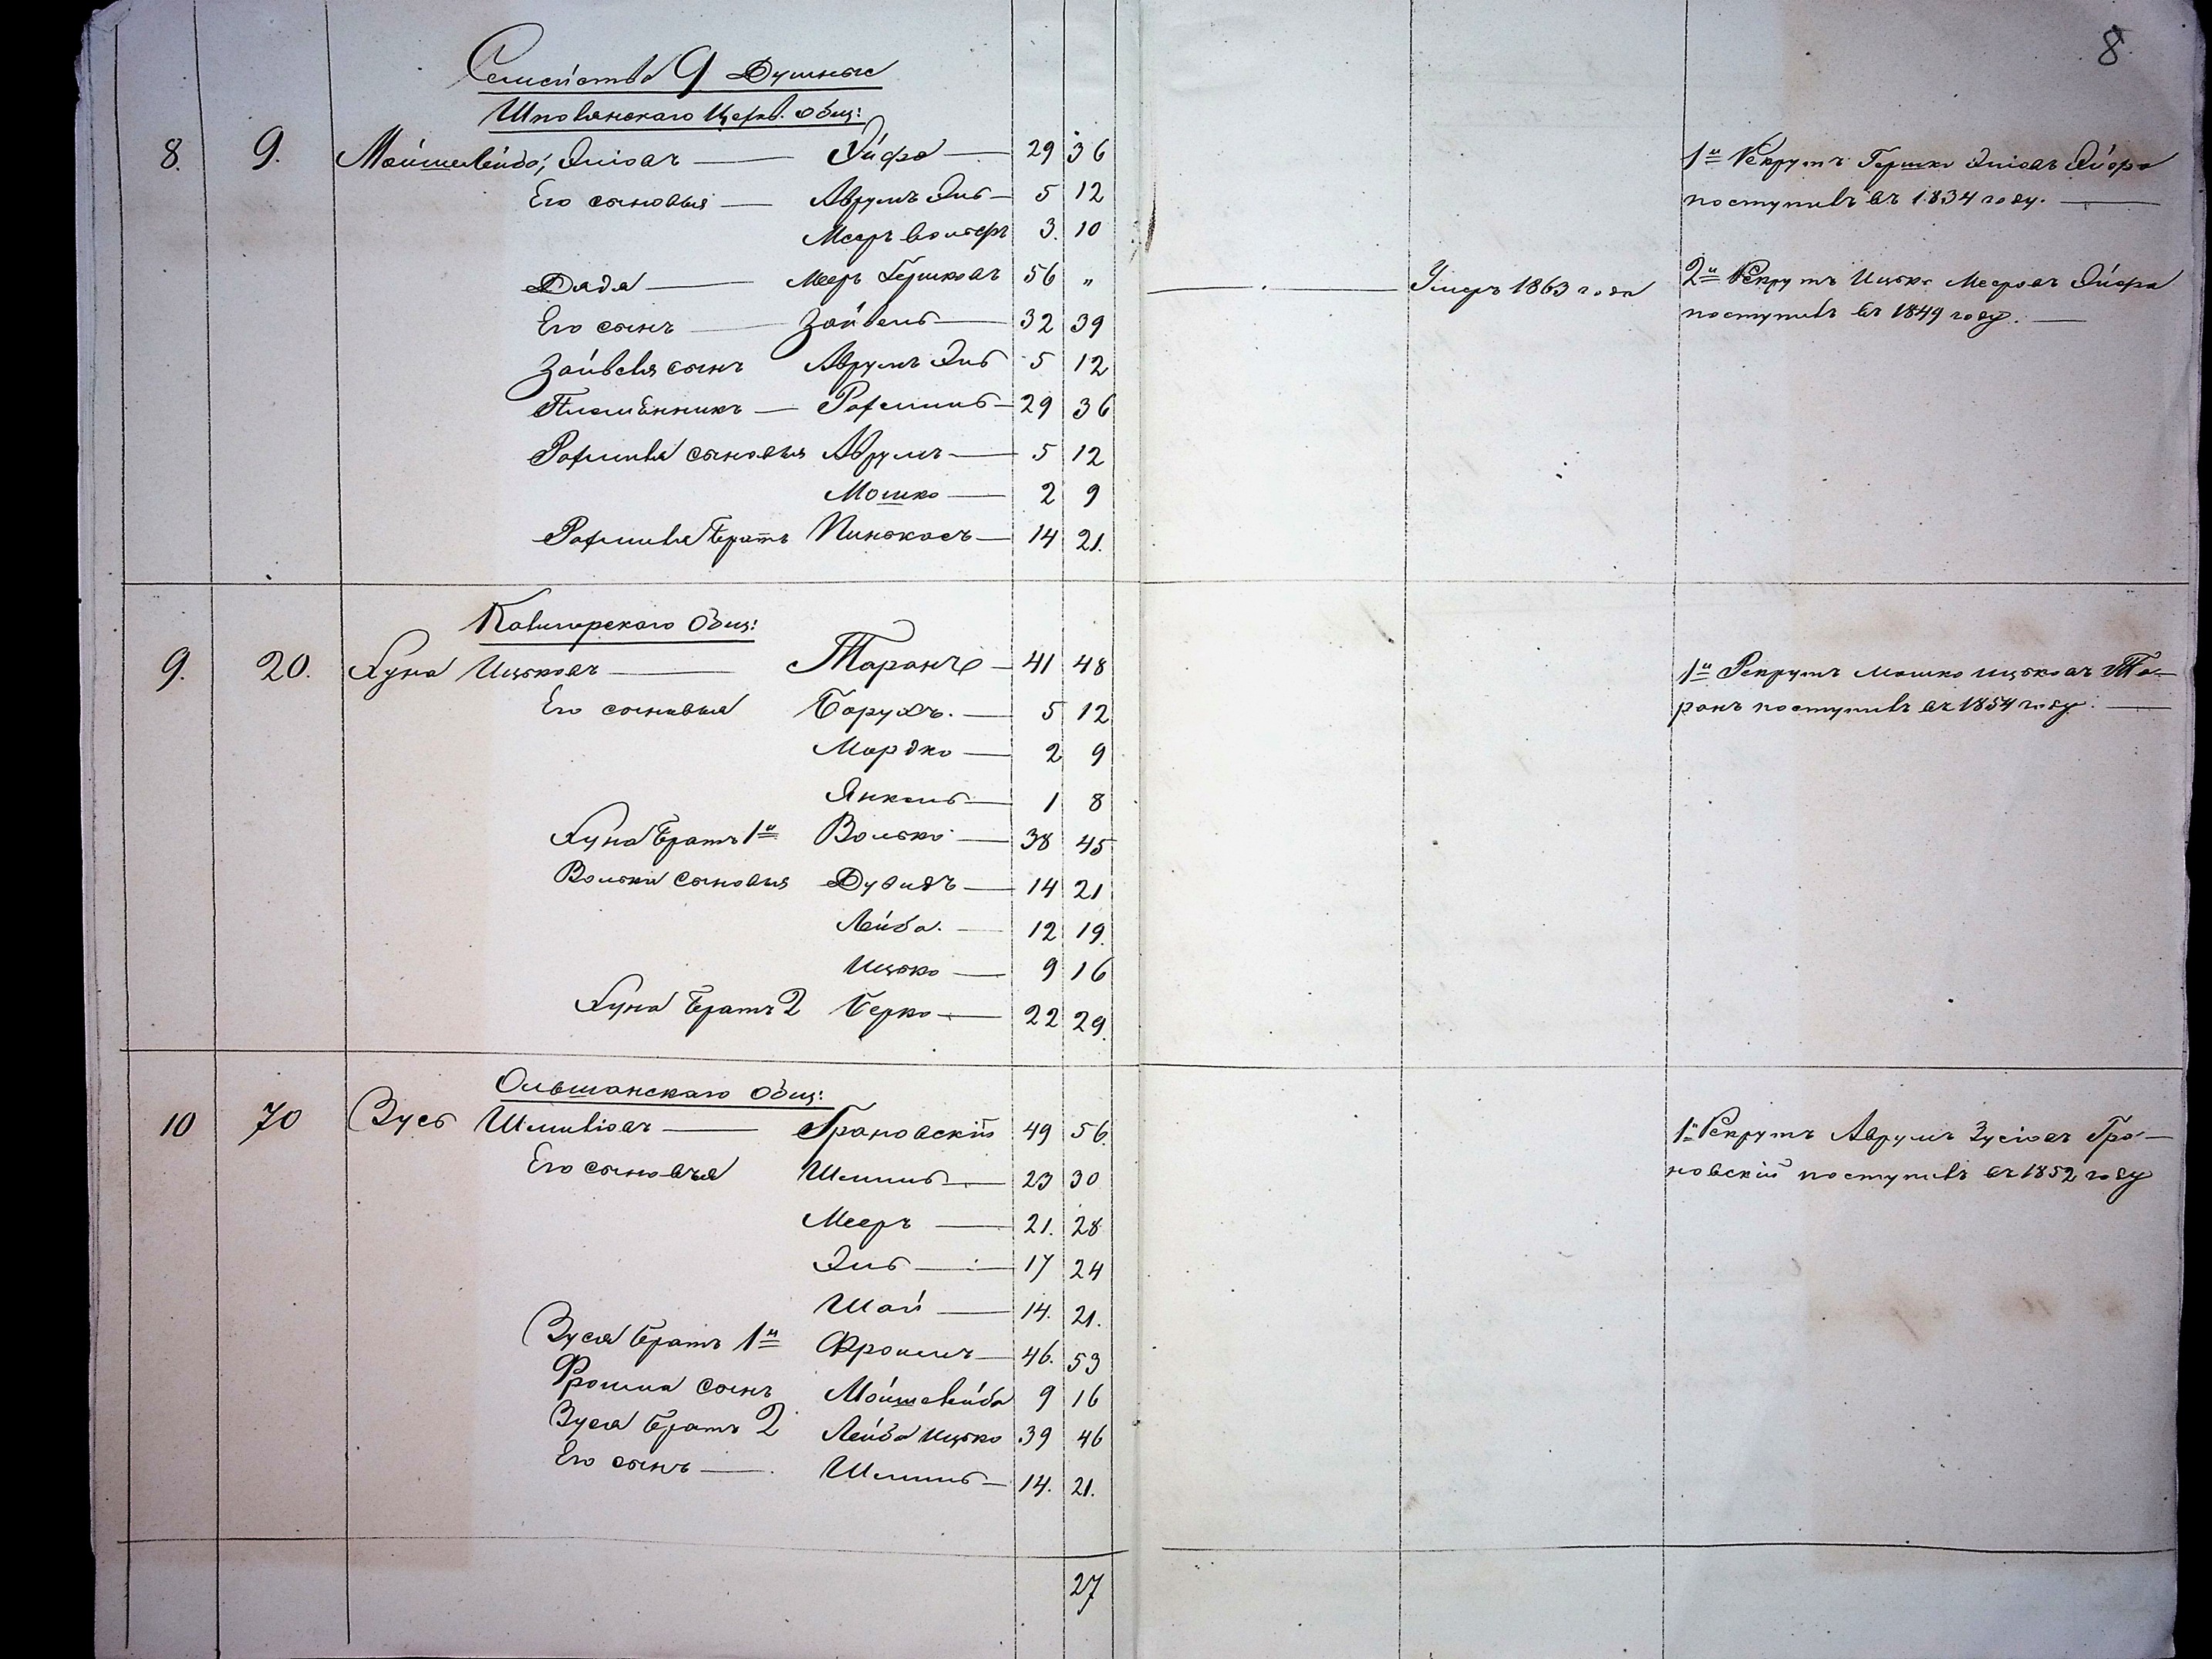 8
Семейства 9 Душныс
Шполянскаго Церк. общ:
8. 9. Мойшелейба, Эліовъ — Эйфа — 29 36
1й Рекрутъ Гершко Эліовъ Эйфа
поступилъ въ 1834 году. —
Его сыновья — Аврумъ Эль — 5 12
Мееръ Вольфъ 3. 10
Дядя — Мееръ Гершковъ 56 „ — Умеръ 1863 года
2й Рекрутъ Ицько Мееровъ Эйфа
поступилъ въ 1849 году. —
Его сынъ — Зайвель — 32 39
Зайвеля сынъ Аврумъ Эль 5 12
Племѣнникъ — Рафаиль — 29 36
Рафаиля сыновья Аврумъ — 5 12
Мошко — 2 9
Рафаиля братъ Пинькасъ — 14 21.
Общ:
9. 20. Хуна Ицьковъ — Таранъ — 41 48
1й Рекрутъ Мошко Ицьковъ Та-
ранъ поступилъ въ 1854 году. —
Его сыновья Борухъ. — 5 12
Мордко — 2 9
Янкель — 1 8
Хуна братъ 1й Волько — 38 45
Волька сыновья Дувидъ — 14 21
Лейба. — 12 19.
Ицько — 9 16
Хуна братъ 2 Берко — 22 29.
Ольшанскаго Общ:
10 70 Зусь Шмиліовъ — Грановскій 49 56.
1й Рекрутъ Аврумъ Зусіовъ Гра-
новскій поступилъ въ 1852 году
Его сыновья Шмиль — 23 30
Мееръ — 21. 28
Эль — 17 24
Шай — 14. 21.
Зуся братъ 1й Фроимъ — 46. 53
Фроима сынъ Мойшелейба 9 16
Зуся братъ 2 Лейба Ицько 39 46
Его сынъ — Шмиль — 14. 21.
27